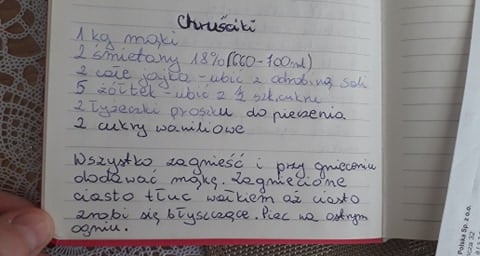 Chruściki
1 kg mąki
2 śmietany 18% (660-700ml)
2 całe jajka - ubić z odrobiną soli
5 żółtek - ubić z ½ szk. cukru
2 łyżeczki proszku do pieczenia
2 cukry waniliowe
Wszystko zagnieść i przy gnieceniu
dodawać mąkę. Zagniecione
ciasto tłuc wałkiem aż ciasto
zrobi się błyszczące. Piec na ostrym
ogniu.
Polska Sp. z o.o.